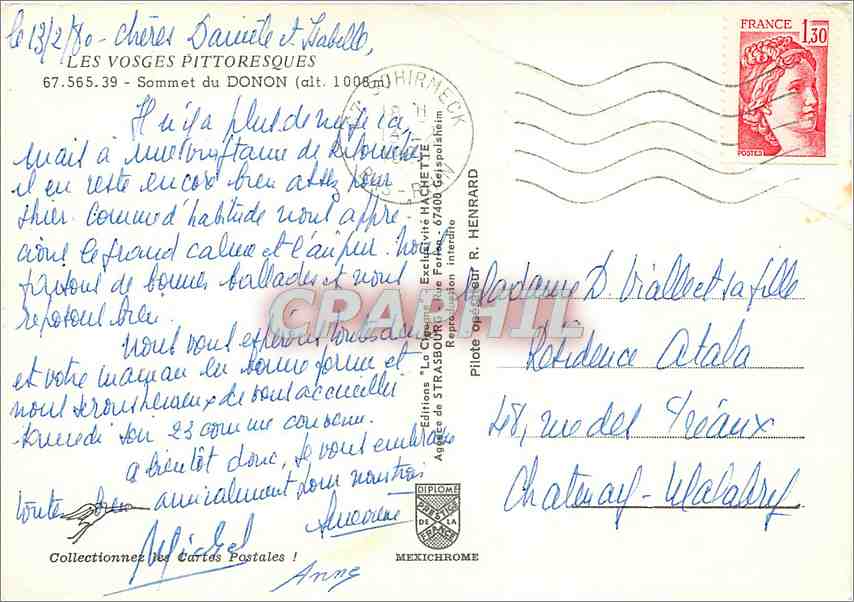 le 13/2/80 - chères Danièle et Isabelle,
LES VOSGES PITTORESQUES
67.565.39 - Sommet du DONON (alt. 1008 m)
Il n'y a plus de neige ici,
mais à une vingtaine de kilomètres
il en reste encore bien assez pour
skier. Comme d'habitude nous appré-
cions le grand calme et l'air pur. Nous
faisons de bonnes ballades et nous
reposons bien.
Nous vous espérons toutes deux
et votre maman en bonne forme et
nous serons heureux de vous accueillir
samedi soir 23 comme convenu.
A bientôt donc, je vous embrasse
toutes bien amicalement pour nous trois
Michel
Anne
Collectionnez les Cartes Postales !
SCHIRMECK
Editions "La Cigogne" - Exclusivité HACHETTE
Agence de STRASBOURG - Rue Forlen - 67400 Geispolsheim
Reproduction interdite
Pilote opérateur R. HENRARD
DIPLOME
PRESTIGE
DE LA
FRANCE
MEXICHROME
FRANCE
1,30
POSTES
Madame D. Viallet et sa fille
Résidence Atala
48, rue des Préaux
Chatenay-Malabry
CPARAMIL